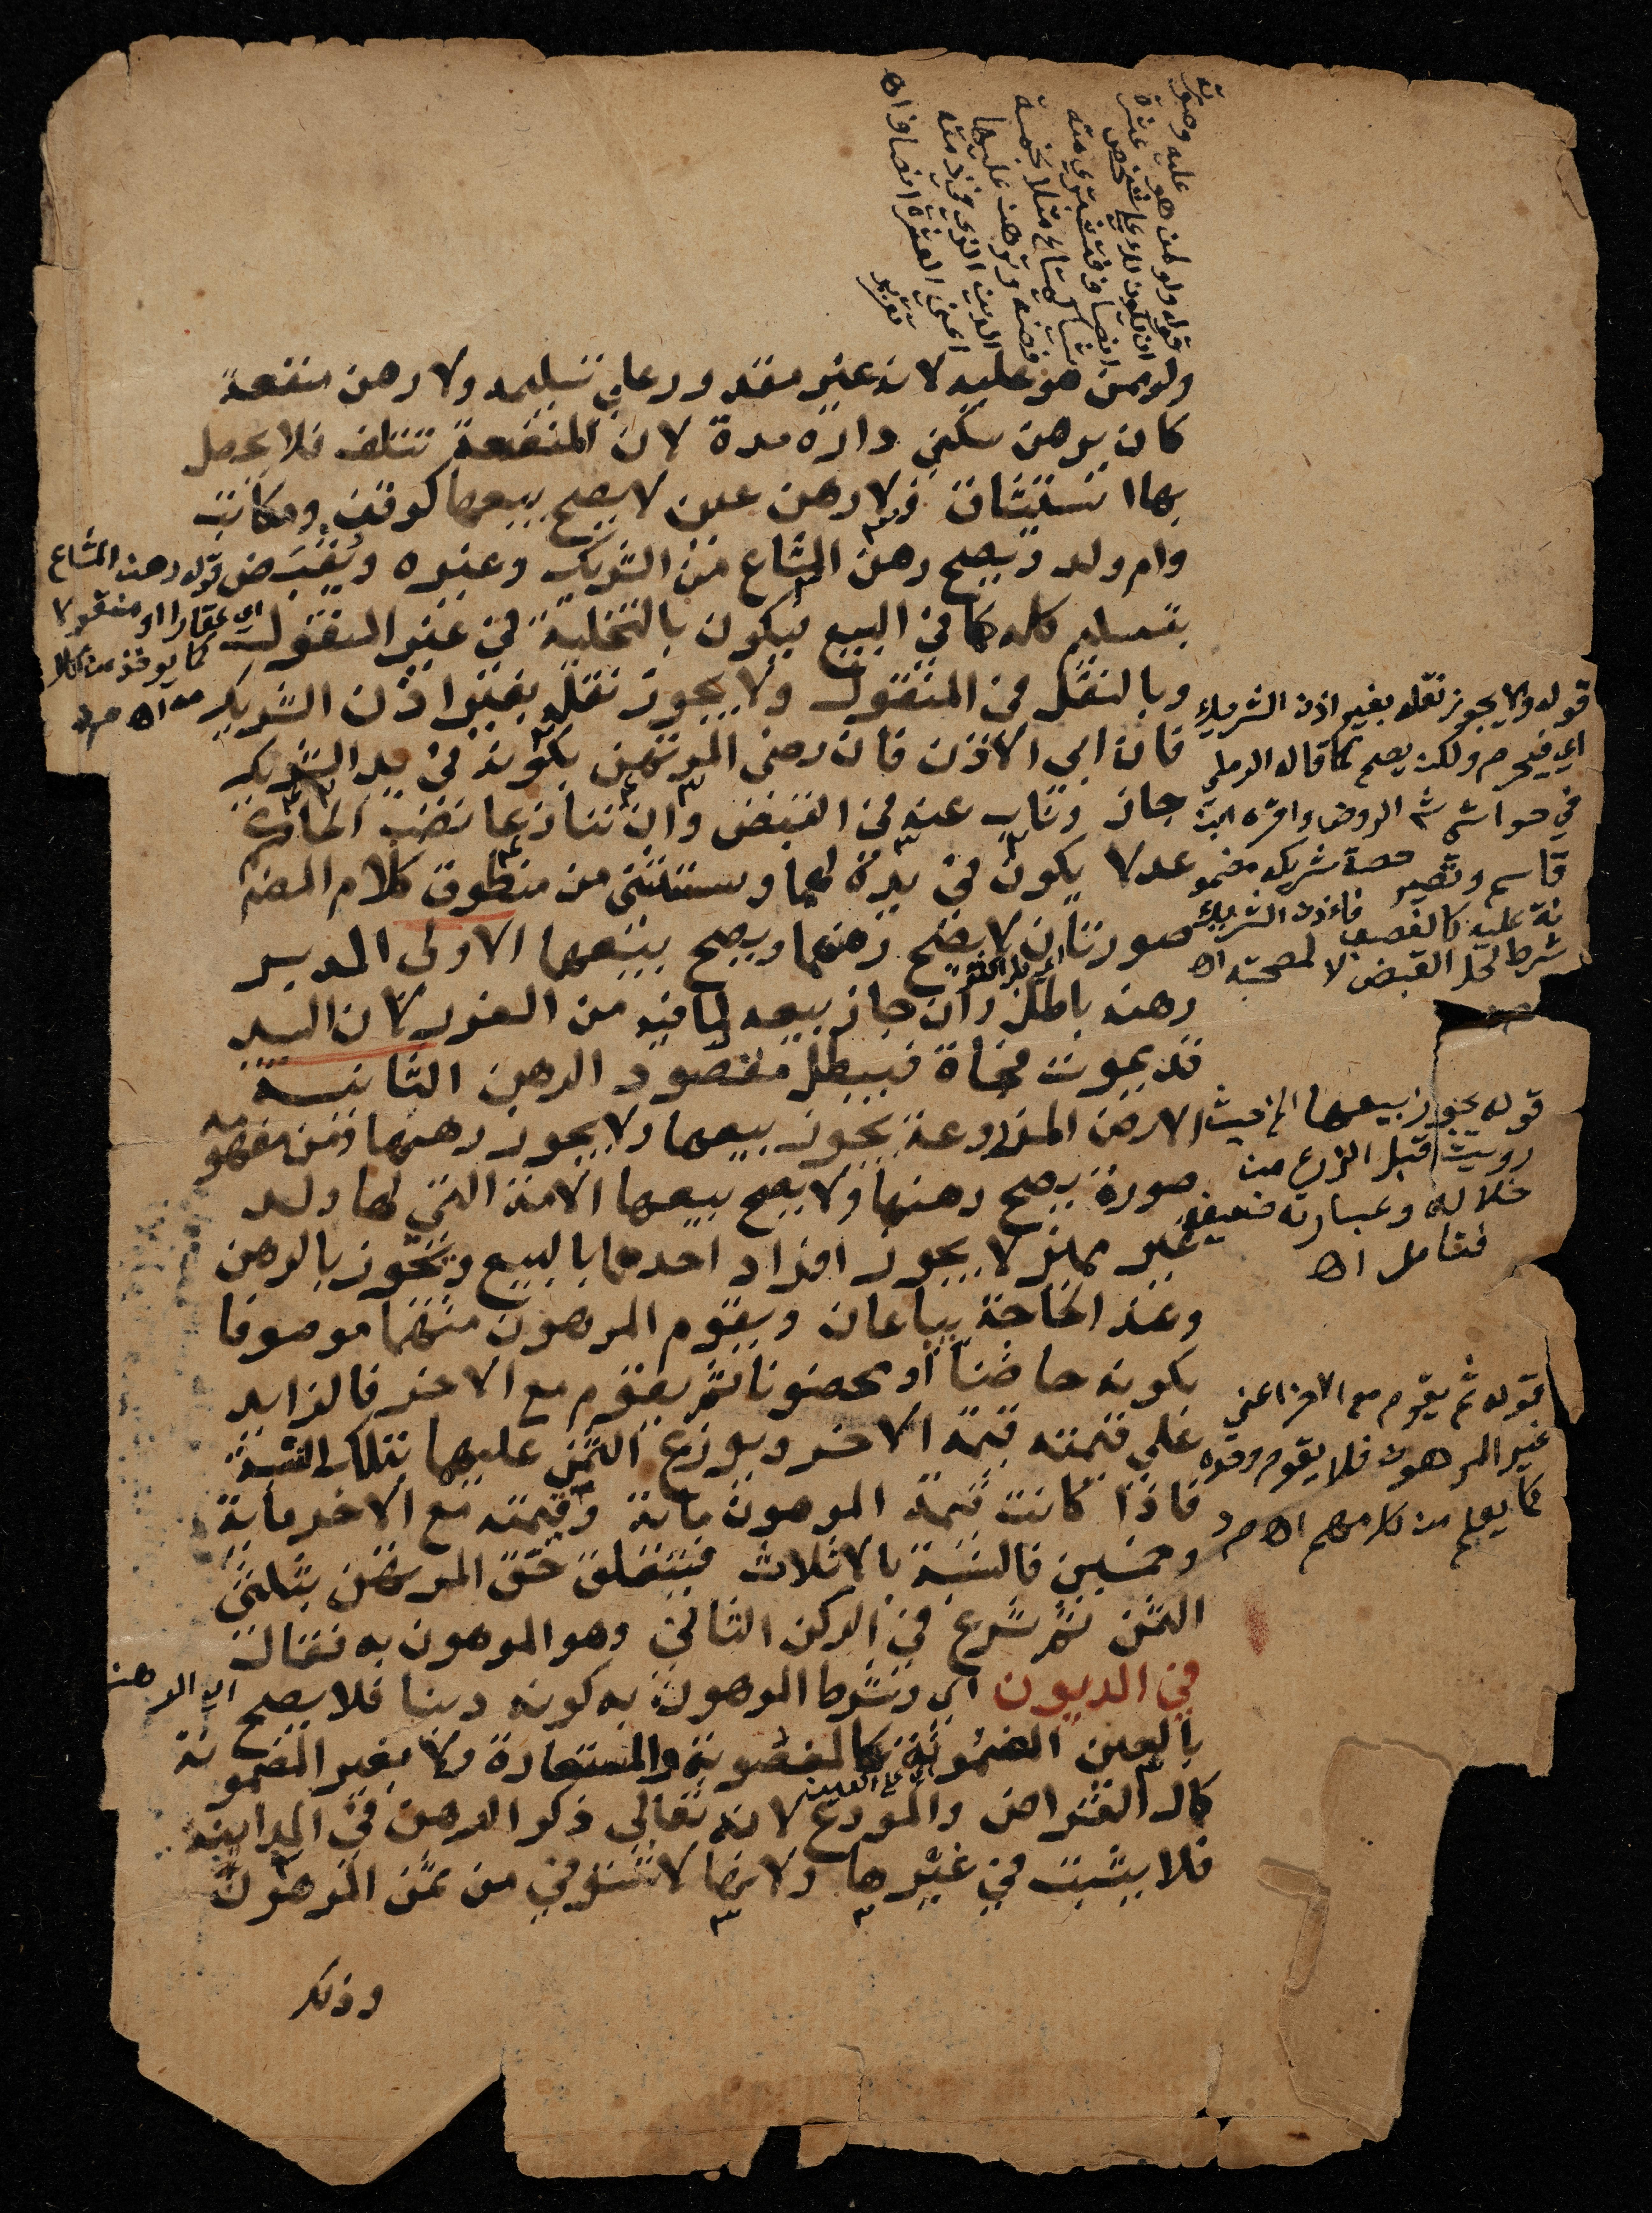 قوله ولو لمن هو عليه وصورته
ان يكون لك على شخص عشرة
انصاف فتشتري منه
قماش مثلا بخمسة
فضة وترهن عليها
الدين الذي في ذمته
اعني العشرة انصاف اه
تقرير
ولو ممن هو عليه لانه غير مقدور على تسليمه ولا رهن منفعة
كان يرهن سكنى داره مدة لان المنفعة تتلف فلا يحصل
بها استيثاق ولا رهن عين لا يصح بيعها كوقف ومكاتب
وام ولد ويصح رهن المشاع من الشريك وغيره ويقبض
بتسليم كله كما في البيع فيكون بالتخلية في غير المنقول
وبالنقل في المنقول ولا يجوز نقله بغير اذن الشريك
فان ابى الاذن فان رضي المرتهن بكونه في يد الشريك
جاز وناب عنه في القبض وان تنازعا نصب الحاكم
عدلا يكون في يده لهما ويستثنى من منطوق كلام المصنف
صورتان لا يصح رهنهما ويصح بيعهما الاولى المدبر
رهنه باطل وان جاز بيعه لما فيه من الغرر لان السيد
قد يموت فجاة فيبطل مقصود الرهن الثانية
الارض المزروعة يجوز بيعها ولا يجوز رهنها ومن مفهومه
صورة يصح رهنها ولا يصح بيعها الامة التي لها ولد
غير مميز لا يجوز افراد احدهما بالبيع ويجوز بالرهن
وعند الحاجة يباعان ويقوم المرهون منهما موصوفا
بكونه حاضنا او محضونا ثم يقوم مع الاخر فالزايد
على قيمته قيمة الاخر ويوزع الثمن عليهما بتلك النسبة
فاذا كانت قيمة المرهون ماية وقيمته مع الاخر ماية
وخمسين فالنسبة بالاثلاث فيتعلق حق المرتهن بثلثي
الثمن ثم شرع في الركن الثالث وهو المرهون به فقال
في الديون اي وشرط المرهون به كونه دينا فلا يصح اي الرهن
بالعين المضمونة كالمغصوبة والمستعارة ولا بغير المضمونة
كمال القراض والمودع لانه تعالى ذكر الرهن في المداينة
فلا يثبت في غيرها ولانها لا تستوفى من ثمن المرهون
وذلك
قوله رهن المشاع
اي عقارا او منقولا
كما يوخذ من كلامه اه
قوله ولا يجوز نقله بغير اذن الشريك
اي فيحرم ولكن يصح كما قاله الرملي
في حواشي شرح الروض واقره ابن
قاسم وتصير حصة شريكه مضمو
نة عليه كالغصب فاذن الشريك
شرط لحل القبض لا لصحته اه
قوله يجوز بيعها اي حيث
رويت قبل الزرع من
خلاله وعبارته ضعيفة
فتامل اه
قوله ثم يقوم مع الاخر اعني
غير المرهون فلا يقوم وحده
كما يعلم من كلامهم اه